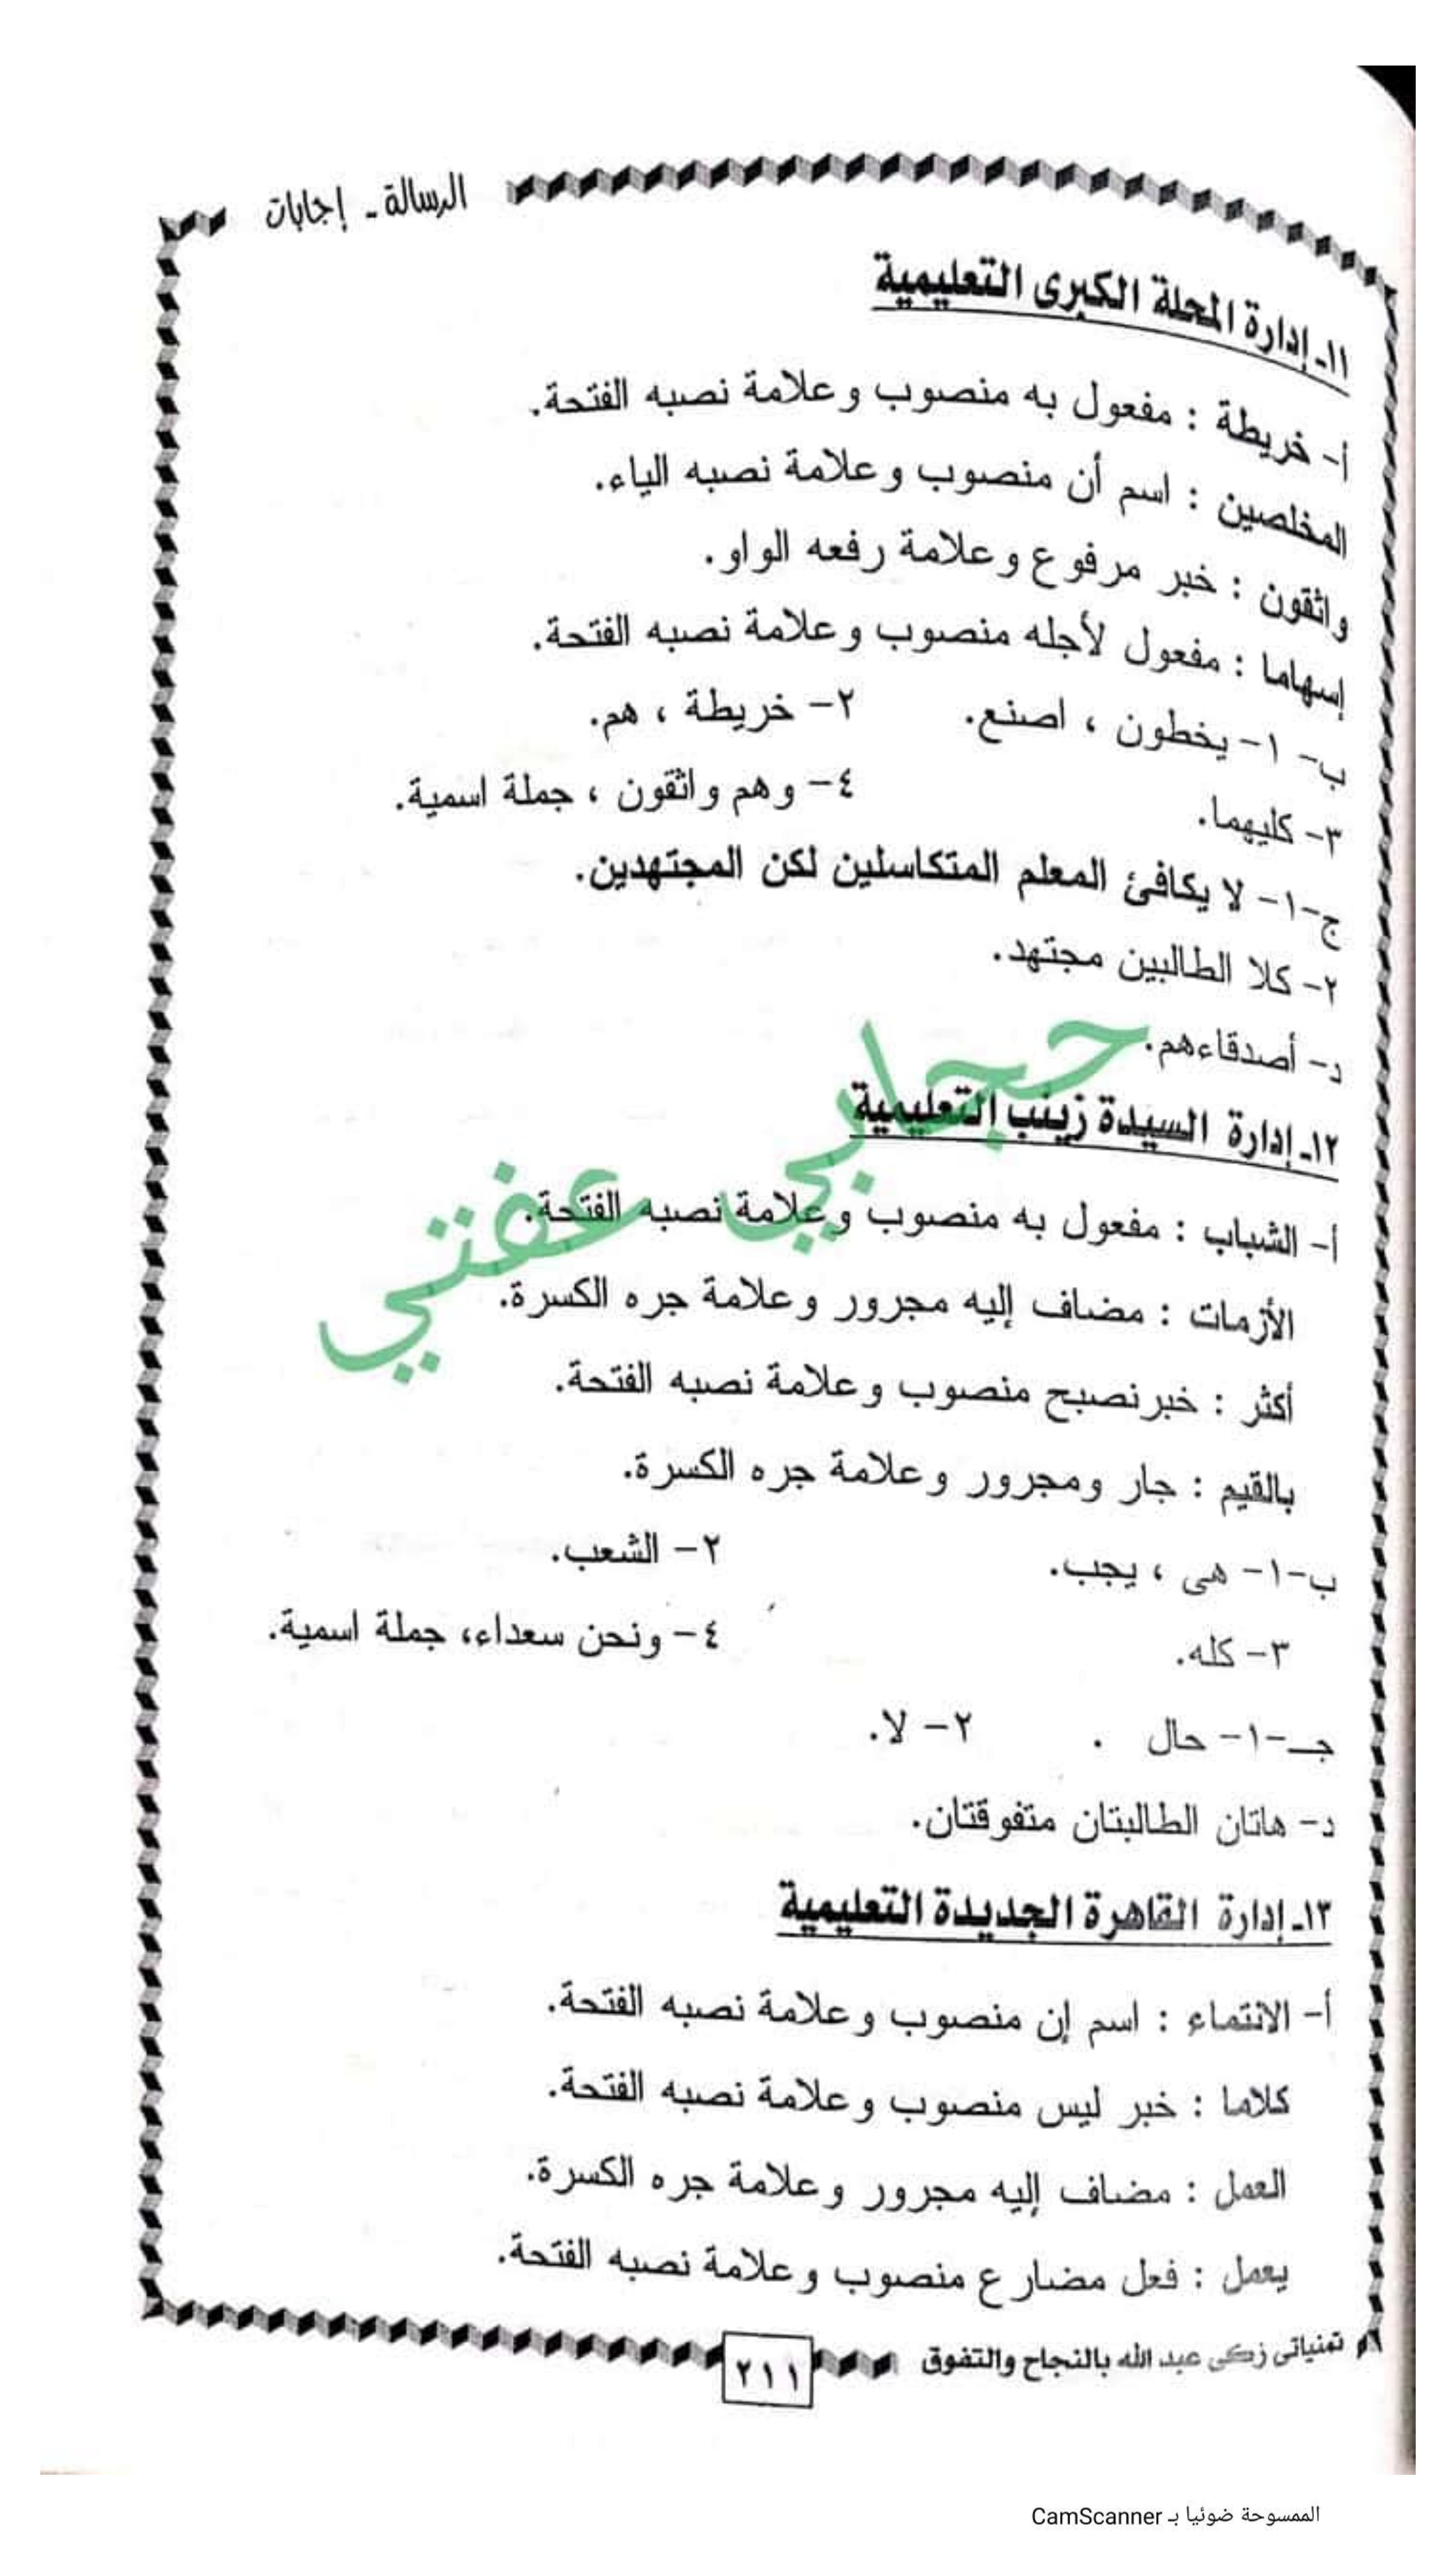 الرسالة - إجابات
١١- إدارة المحلة الكبرى التعليمية
أ- خريطة : مفعول به منصوب وعلامة نصبه الفتحة.
المخلصين : اسم أن منصوب وعلامة نصبه الياء.
واثقون : خبر مرفوع وعلامة رفعه الواو.
إسهاما : مفعول لأجله منصوب وعلامة نصبه الفتحة.
ب- ١- يخطون ، اصنع. ٢- خريطة ، هم.
٣- كليهما. ٤- وهم واثقون ، جملة اسمية.
ج-١- لا يكافئ المعلم المتكاسلين لكن المجتهدين.
٢- كلا الطالبين مجتهد.
د- أصدقاءهم.
١٢- إدارة السيدة زينب التعليمية
أ- الشباب : مفعول به منصوب وعلامة نصبه الفتحة.
الأزمات : مضاف إليه مجرور وعلامة جره الكسرة.
أكثر : خبر نصبح منصوب وعلامة نصبه الفتحة.
بالقيم : جار ومجرور وعلامة جره الكسرة.
ب-١- هى ، يجب. ٢- الشعب.
٣- كله. ٤- ونحن سعداء، جملة اسمية.
جـ-١- حال . ٢- لا.
د- هاتان الطالبتان متفوقتان.
١٣- إدارة القاهرة الجديدة التعليمية
أ- الانتماء : اسم إن منصوب وعلامة نصبه الفتحة.
كلاما : خبر ليس منصوب وعلامة نصبه الفتحة.
العمل : مضاف إليه مجرور وعلامة جره الكسرة.
يعمل : فعل مضارع منصوب وعلامة نصبه الفتحة.
تمنياتى زكى عبد الله بالنجاح والتفوق
٢١١
حجابي عفتي
الممسوحة ضوئيا بـ CamScanner